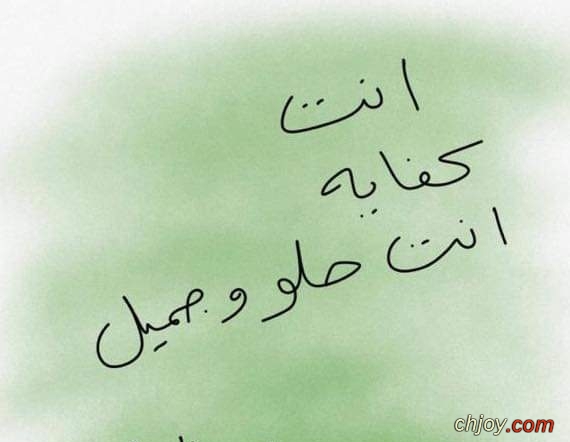 انت
كفايه
انت حلو و جميل
chjoy.com